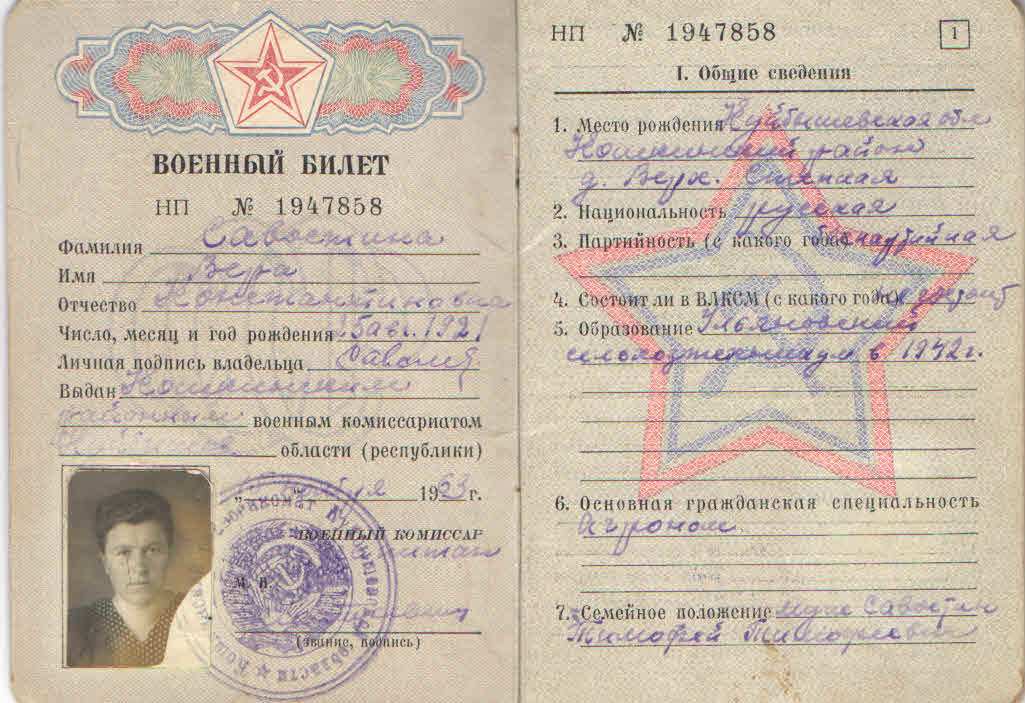 ВОЕННЫЙ БИЛЕТ
НП № 1947858
Фамилия Савостина
Имя Вера
Отчество Константиновна
Число, месяц и год рождения 15 авг. 1921
Личная подпись владельца
Выдан Кошкинским
районным военным комиссариатом
области (республики)
1963 г.
ВОЕННЫЙ КОМИССАР
М. П.
(звание, подпись)
НП № 1947858
1
I. Общие сведения
1. Место рождения Куйбышевская обл
Кошкинский район
д. Верх. Степная
2. Национальность русская
3. Партийность (с какого года) беспартийная
4. Состоит ли в ВЛКСМ (с какого года) не состоит
5. Образование Ульяновский
сельхозтехникум в 1942 г.
6. Основная гражданская специальность
Агроном
7. Семейное положение муж Савостин
Тимофей Тимофеевич